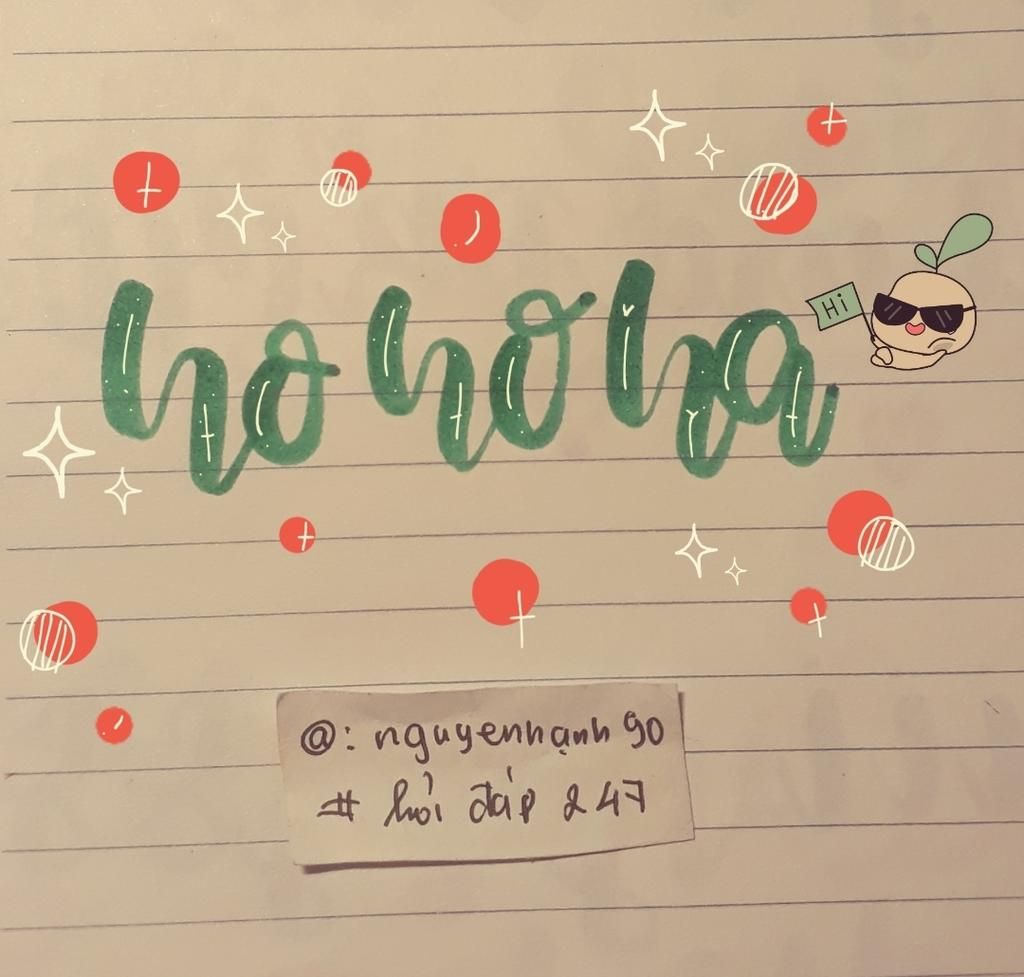 ho hơ ha
Hi
@: nguyenhạnh90
# hỏi đáp 247